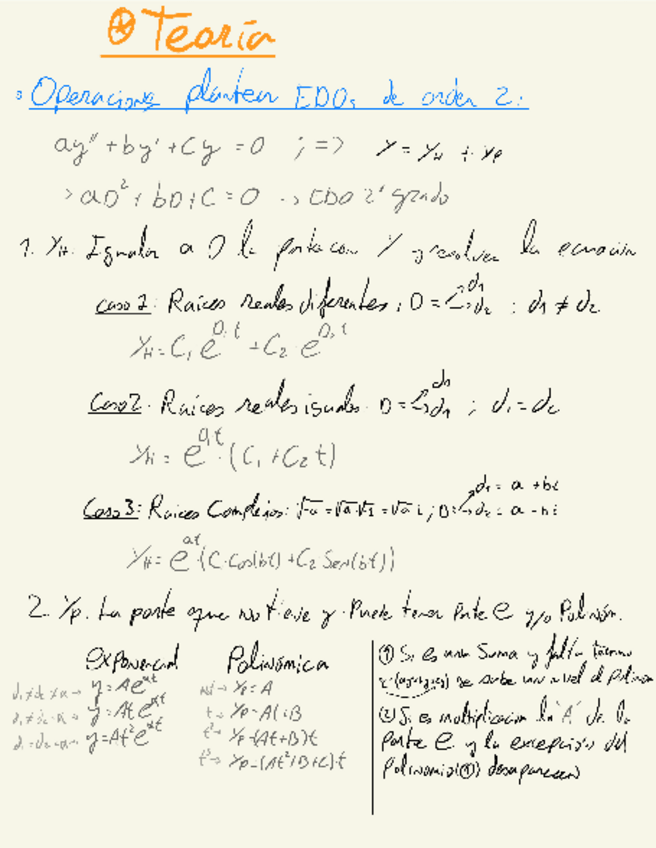 ⊛ Teoría
° Operaciones plantear EDOs de orden 2:
ay'' + by' + Cy = 0 ; => y = yH + yP
> aD² + bD + C = 0 → EDO 2º grado
1. yH. Igualar a 0 la parte con y y resolver la ecuación
Caso 1: Raíces reales diferentes; D = d1 d2 ; d1 ≠ d2
yH = C1 e^D1t + C2 e^D2t
Caso 2. Raíces reales iguales. D = d1 d1 ; d1 = d2
yH = e^d1t · (C1 + C2 t)
Caso 3: Raíces Complejas: √-a = √a·√-1 = √a i ; D: d1 = a + bi d2 = a - bi
yH = e^at · (C1 Cos(bt) + C2 Sen(bt))
2. yP. La parte que no tiene y. Puede tener Parte e y/o Polinóm.
exponencial
d1 ≠ d2 ≠ α → y = Ae^αt
y = Ate^αt
y = At²e^αt
Polinómica
→ yP = A
t → yP = At + B
t² → yP = (At + B)t
t³ → yP = (At² + B + C)·t
① Si es una Suma y falta término
se sube un nivel el polinom
② Si es multiplicación la "A" de la
Parte e y la excepción del
Polinomio (①) desaparecen